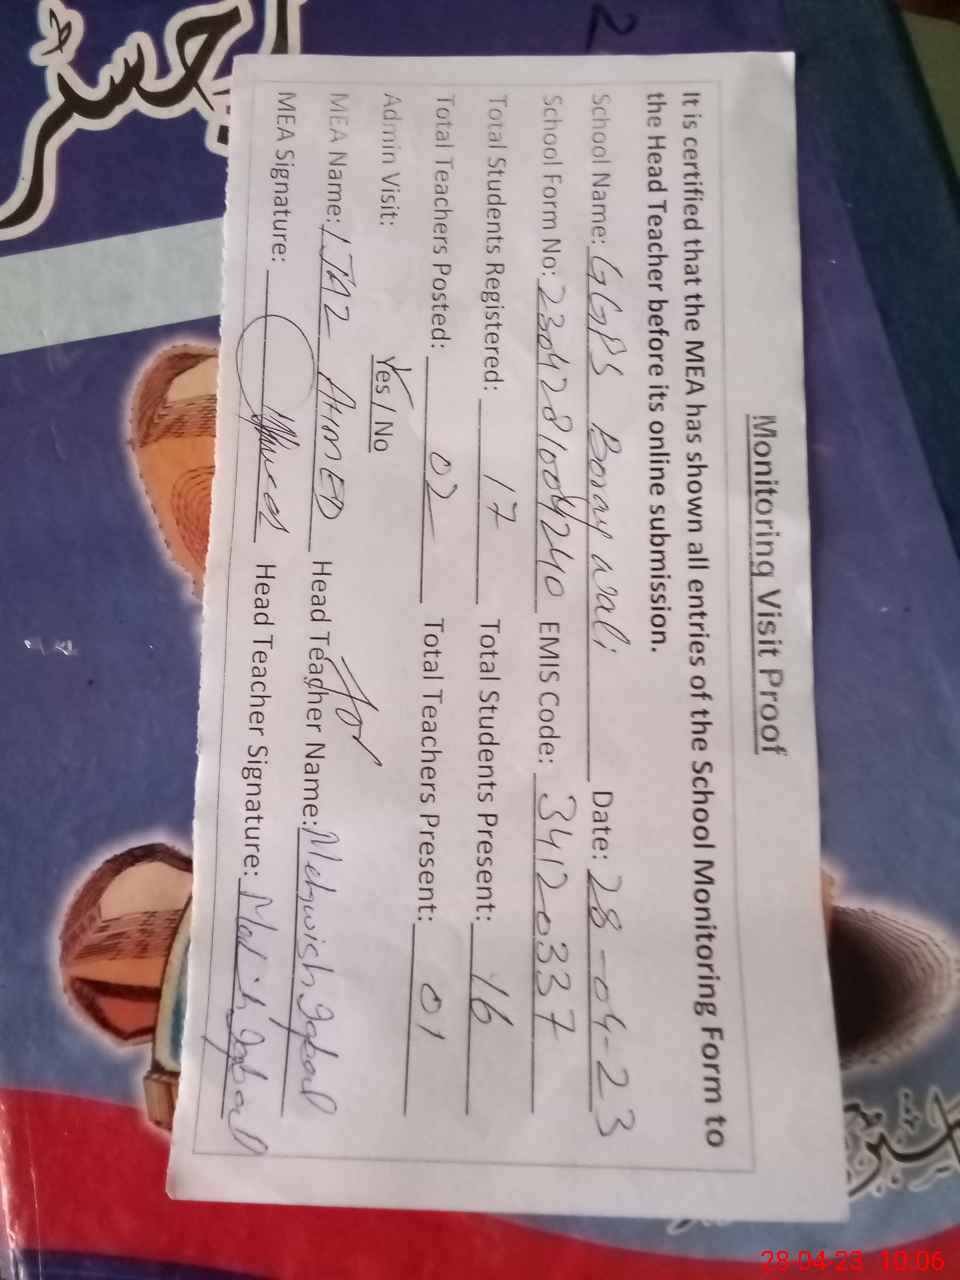 Monitoring Visit Proof
It is certified that the MEA has shown all entries of the School Monitoring Form to
the Head Teacher before its online submission.
School Name: GGPS Boray wali Date: 28-04-23
School Form No: 2304281004240 EMIS Code: 34120337
Total Students Registered: 17 Total Students Present: 16
Total Teachers Posted: 02 Total Teachers Present: 01
Admin Visit: Yes / No
MEA Name: IJAZ AHMED Head Teacher Name: Mehwish Iqbal
MEA Signature: Ahmed Head Teacher Signature: Iqbal
2
28-04-23 10:06